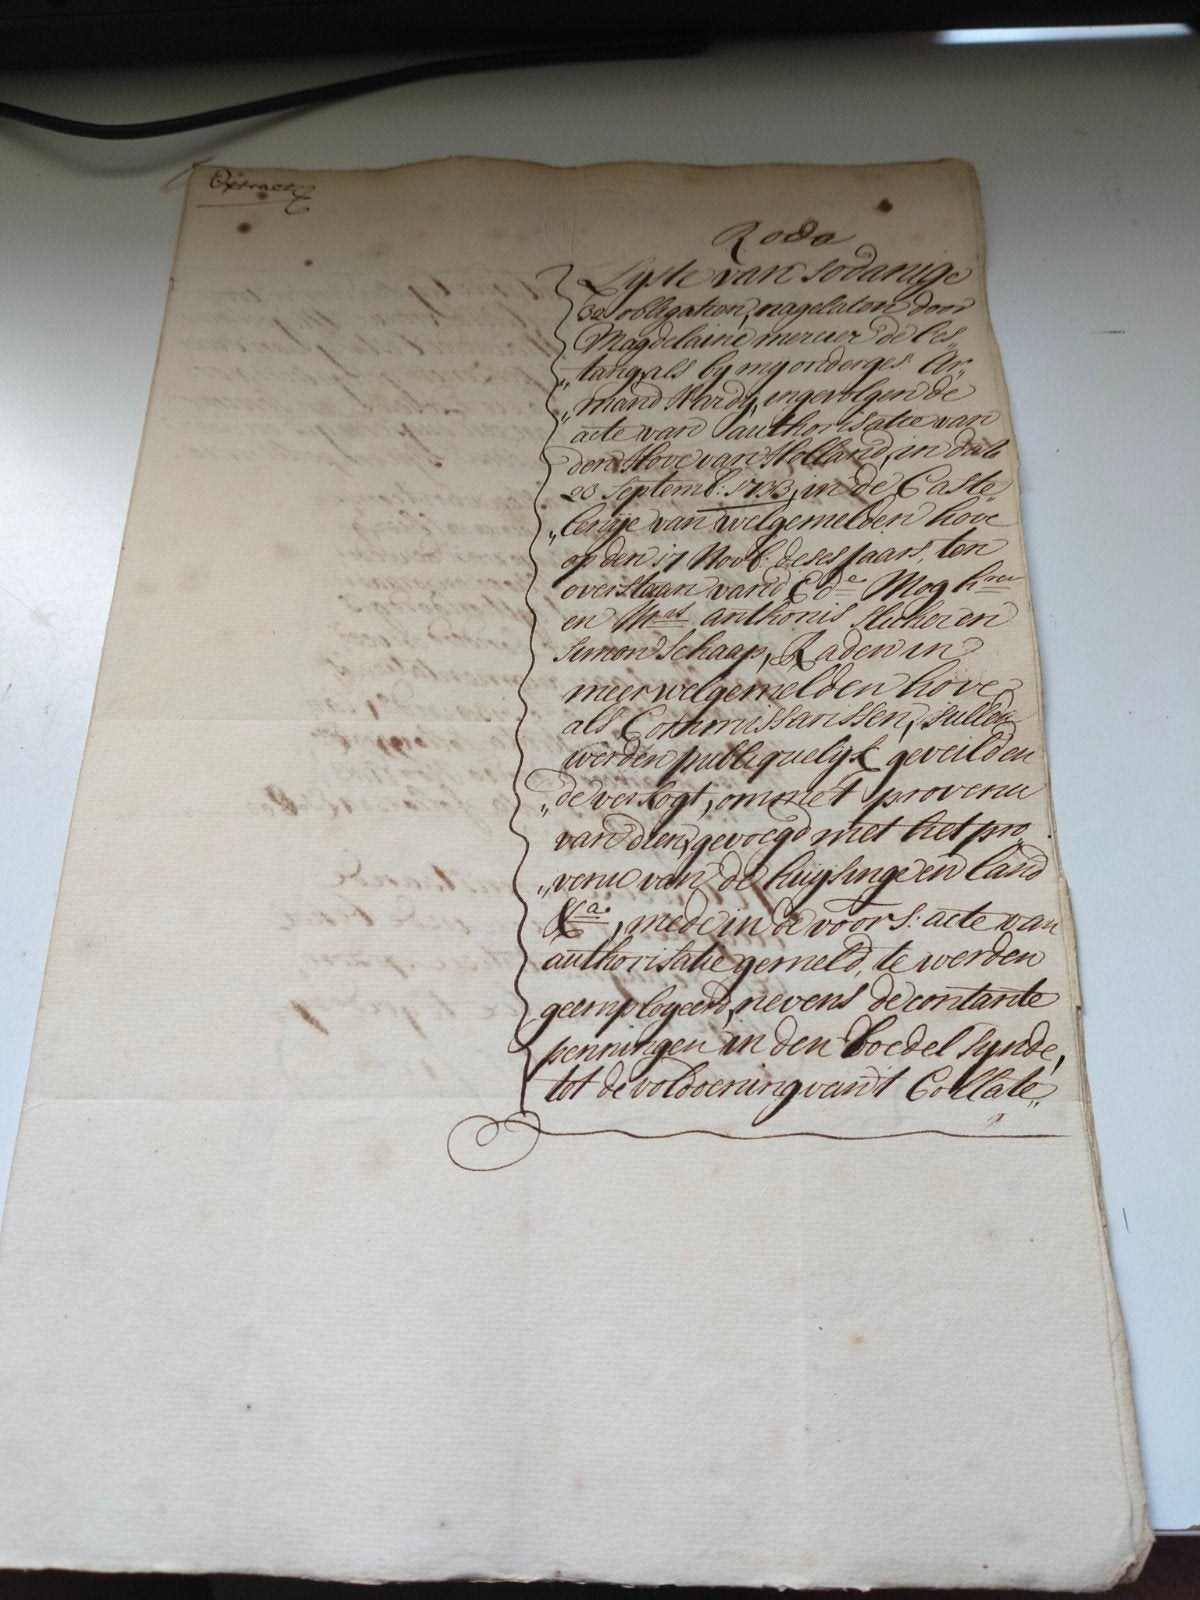 Extract
Roda
Lyste van sodanige
32 obligatien, nagelaten door
Magdelaine mercier de l'es„
„tang, als by my onderges: Ar„
„mand Hardy, ingevolgen de
acte van authorisatie van
den Hove van Holland, in dato
23 Septemb: 1733, in de Caste
„lenye van welgemelden hove
op den 17 Novb: deses Jaars, ten
overstaan van d'Ede Mog hren
en Mrs anthonis Slicher en
Simon Schaap, Raden in
meerwelgemelden hove
als Commissarissen, sullen
werden publiquelyk geveild en
„de verkogt, om met provenu
van dien, gevoegd met het pro
„venu van de huysinge en land
&a, mede in de voors: acte van
authorisatie gemeld, te werden
geemployeerd, nevens de contante
penningen in den boedel synde,
tot de voldoening van't Collate„